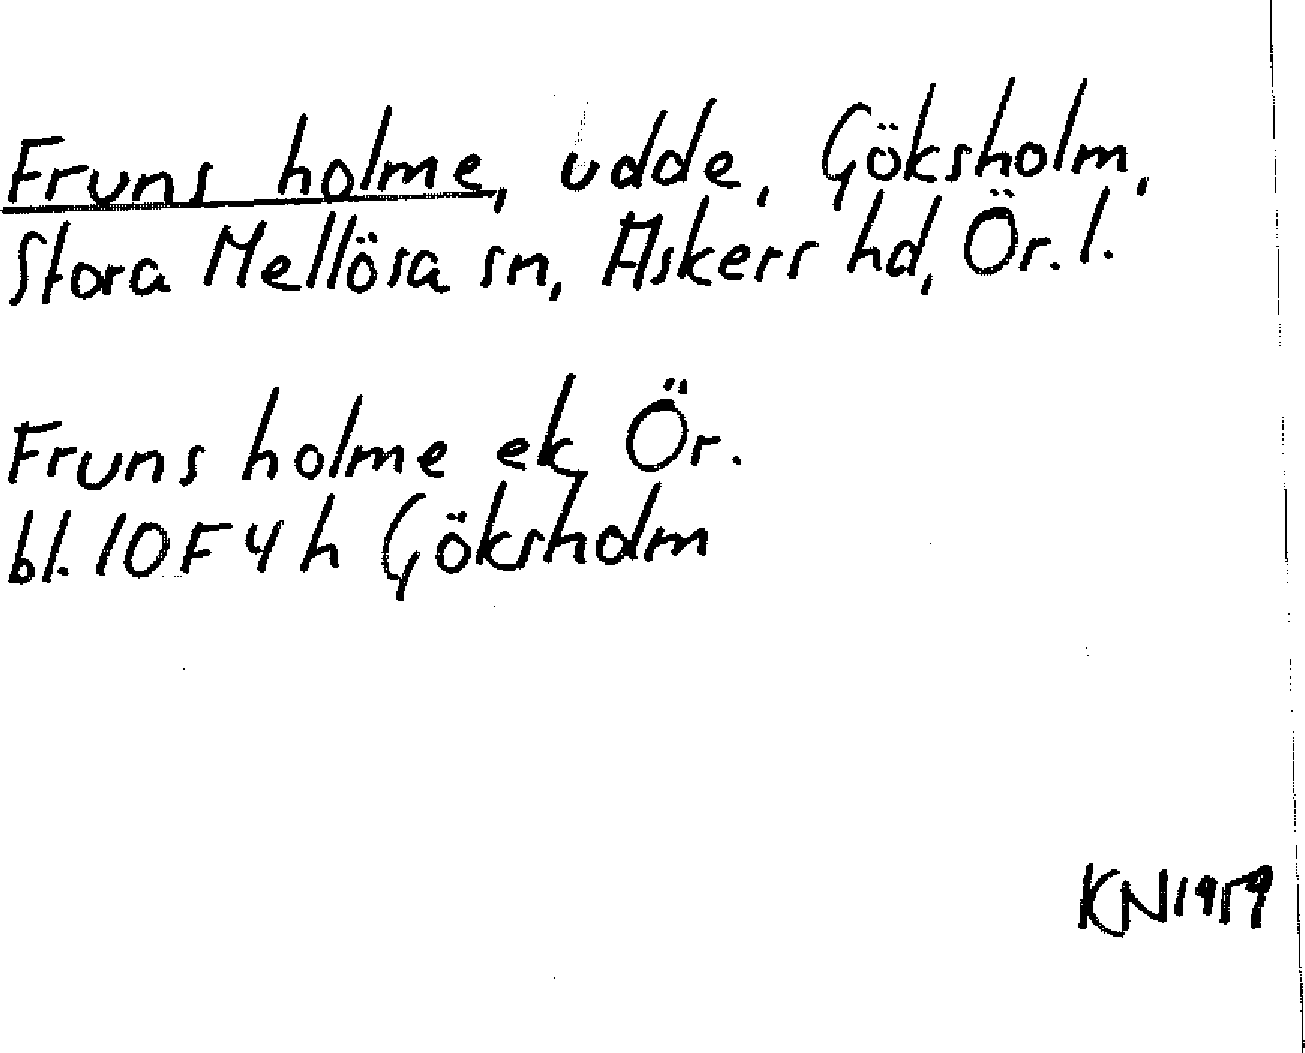 Fruns holme, udde, Göksholm,
Stora Mellösa sn, Askers hd, Ör. l.
Fruns holme ek Ör.
bl. 10F4h Göksholm
KN1959